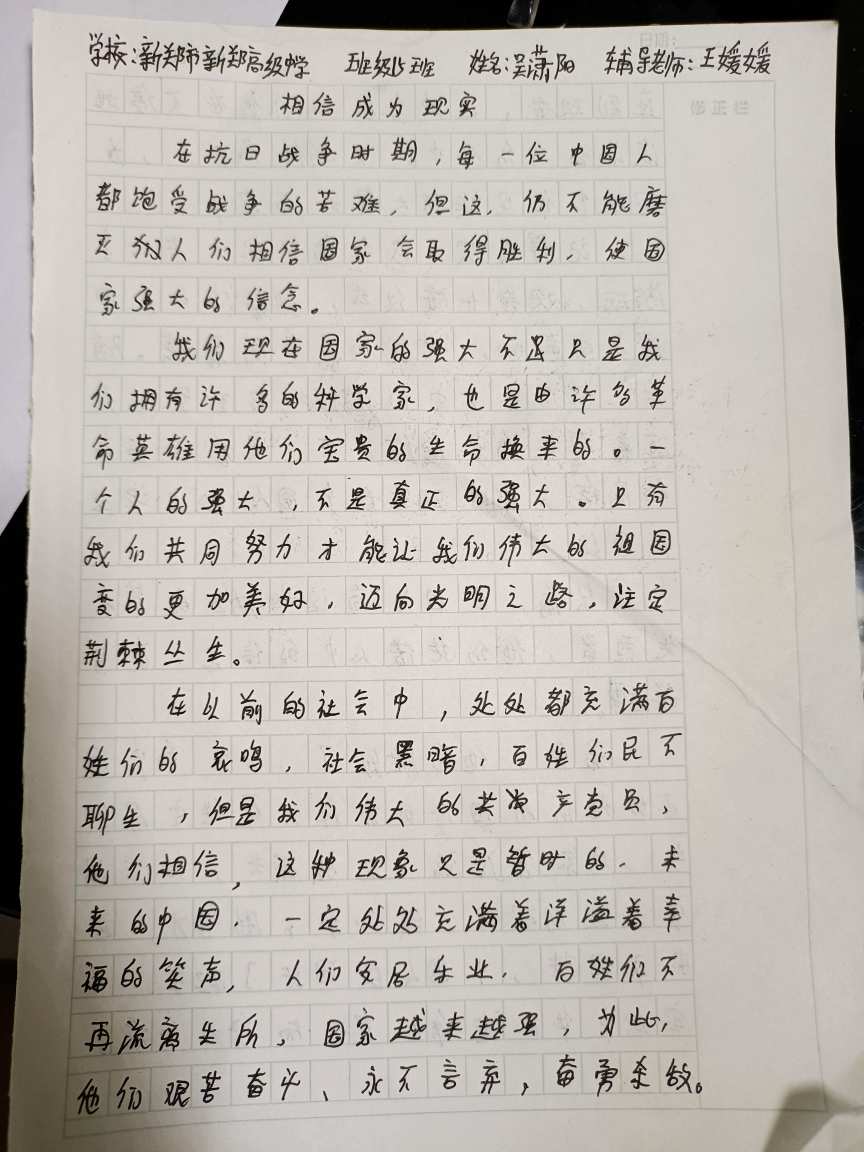 学校:新郑市新郑高级中学 班级15班 姓名:吴潇阳 辅导老师:王媛媛
相信成为现实
在抗日战争时期,每一位中国人
都饱受战争的苦难,但这,仍不能磨
灭人们相信国家会取得胜利,使国
家强大的信念。
我们现在国家的强大不只是我
们拥有许多的科学家,也是由许多革
命英雄用他们宝贵的生命换来的。一
个人的强大,不是真正的强大。只有
我们共同努力才能让我们伟大的祖国
变的更加美好,迈向光明之路,注定
荆棘丛生。
在以前的社会中,处处都充满百
姓们的哀鸣,社会黑暗,百姓们民不
聊生,但是我们伟大的共产党员,
他们相信,这种现象只是暂时的,未
来的中国,一定处处充满着洋溢着幸
福的笑声,人们安居乐业,百姓们不
再流离失所,国家越来越强,为此,
他们艰苦奋斗、永不言弃,奋勇杀敌。
修正栏